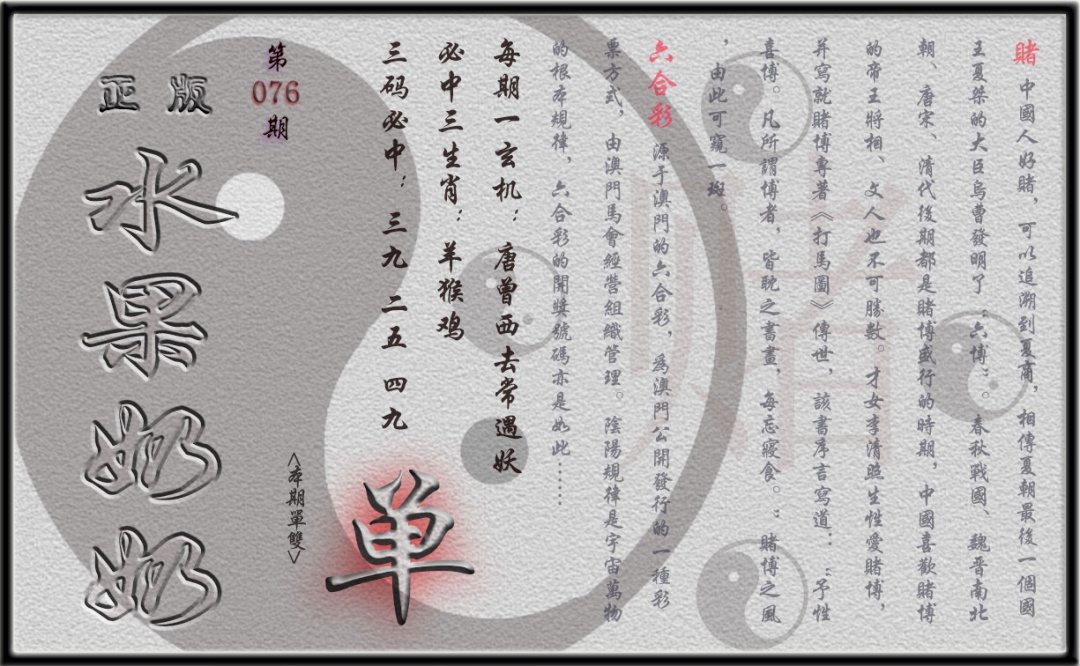 賭 中國人好賭，可以追溯到夏商，相傳夏朝最後一個國
王夏桀的大臣烏曹發明了“六博”。春秋戰國、魏晉南北
朝、唐宋、清代後期都是賭博盛行的時期，中國喜歡賭博
的帝王將相、文人也不可勝數。才女李清照生性愛賭博，
并寫就賭博專著《打馬圖》傳世，該書序言寫道：“予性
喜博。凡所謂博者，皆耽之書畫，每忘寢食。”賭博之風
，由此可窺一斑。
六合彩 源于澳門的六合彩，為澳門公開發行的一種彩
票方式，由澳門馬會經營組織管理。陰陽規律是宇宙萬物
的根本規律，六合彩的開獎號碼亦是如此……
每期一玄机：唐曾西去常遇妖
必中三生肖：羊猴鸡
三码必中：三九 二五 四九
单
<本期單雙>
第
076
期
正版
水果奶奶
赌